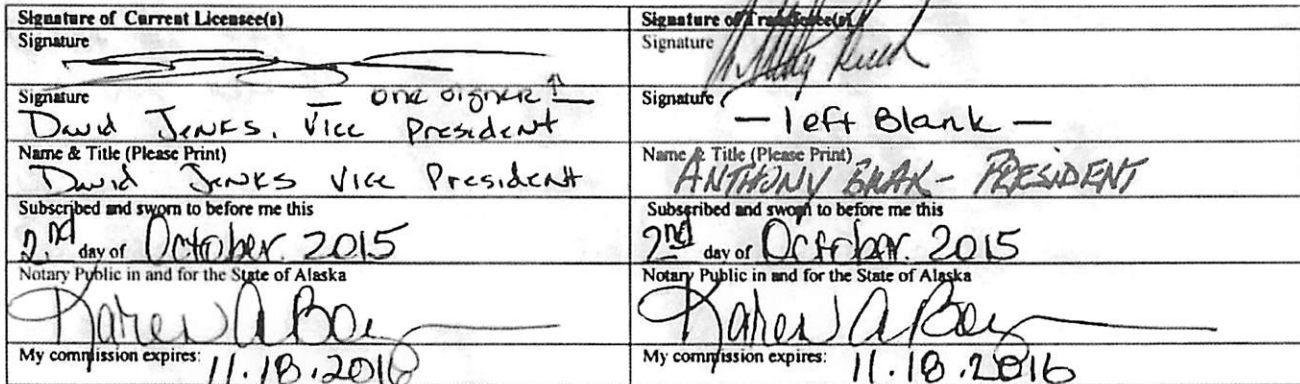 Signature of Current Licensee(s)
Signature
Signature — one signer ↑ —
David Jenks, Vice President
Name & Title (Please Print)
David Jenks Vice President
Subscribed and sworn to before me this
2nd day of October. 2015
Notary Public in and for the State of Alaska
Karen A
My commission expires: 11.18.2016
Signature of Transferee(s)
Signature
Signature
— left Blank —
Name & Title (Please Print)
ANTHONY - PRESIDENT
Subscribed and sworn to before me this
2nd day of October. 2015
Notary Public in and for the State of Alaska
Karen A
My commission expires: 11.18.2016